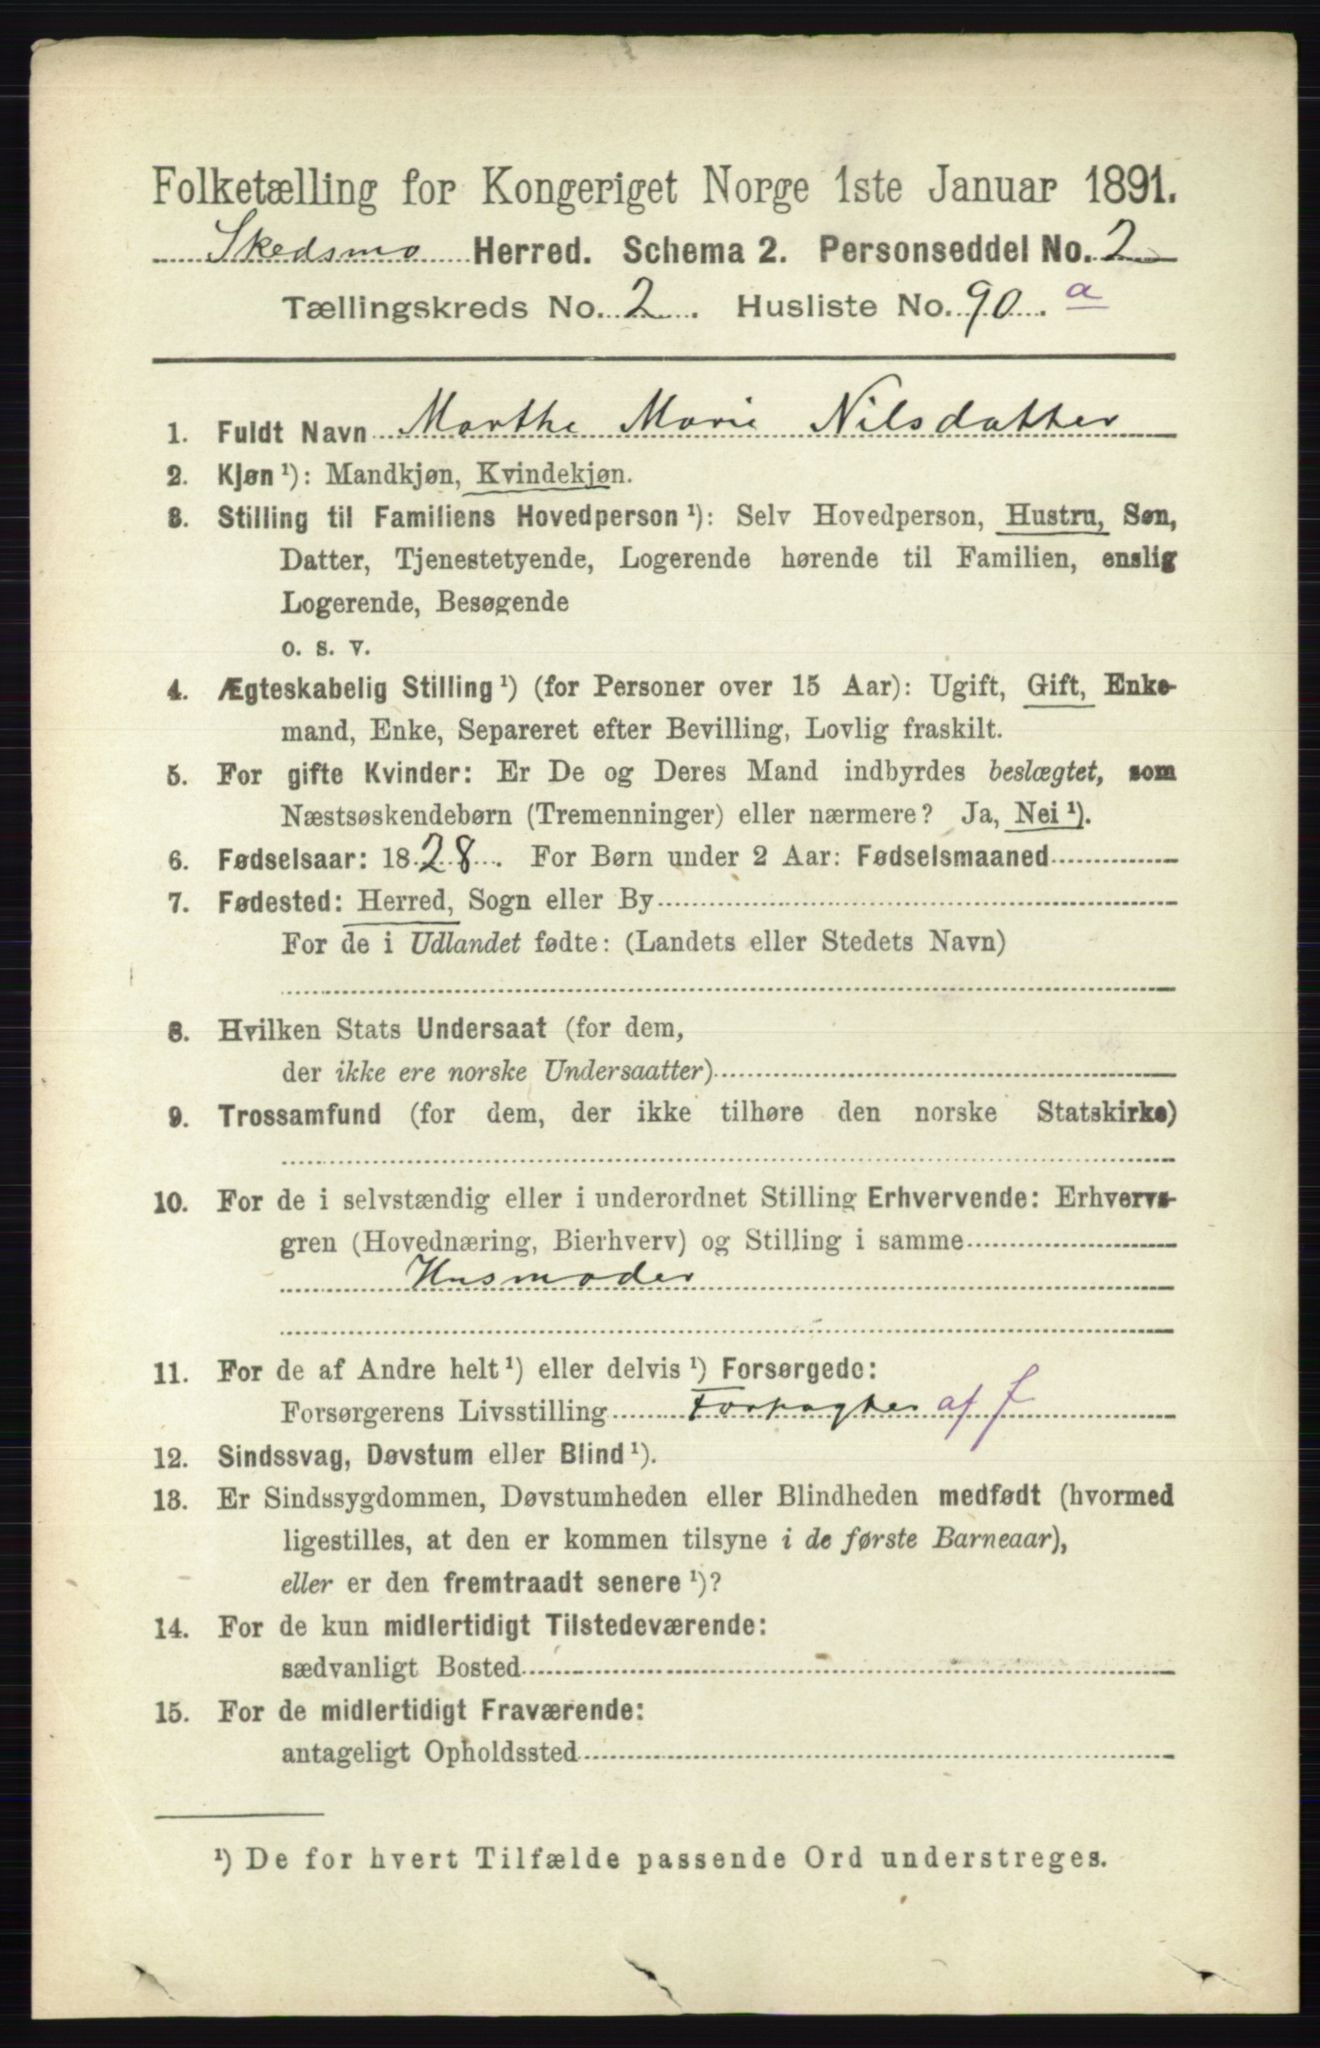 Folketælling for Kongeriget Norge 1ste Januar 1891.
Skedsmo Herred. Schema 2. Personseddel No. 2
Tællingskreds No. 2. Husliste No. 90. a
1. Fuldt Navn Marthe Marie Nilsdatter
2. Kjøn ¹): Mandkjøn, Kvindekjøn.
3. Stilling til Familiens Hovedperson ¹): Selv Hovedperson, Hustru, Søn,
Datter, Tjenestetyende, Logerende hørende til Familien, enslig
Logerende, Besøgende
o. s. v.
4. Ægteskabelig Stilling ¹) (for Personer over 15 Aar): Ugift, Gift, Enke-
mand, Enke, Separeret efter Bevilling, Lovlig fraskilt.
5. For gifte Kvinder: Er De og Deres Mand indbyrdes beslægtet, som
Næstsøskendebørn (Tremenninger) eller nærmere? Ja, Nei ¹).
6. Fødselsaar: 1828. For Børn under 2 Aar: Fødselsmaaned
7. Fødested: Herred, Sogn eller By
For de i Udlandet fødte: (Landets eller Stedets Navn)
8. Hvilken Stats Undersaat (for dem,
der ikke ere norske Undersaatter)
9. Trossamfund (for dem, der ikke tilhøre den norske Statskirke)
10. For de i selvstændig eller i underordnet Stilling Erhvervende: Erhvervs-
gren (Hovednæring, Bierhverv) og Stilling i samme
Husmoder
11. For de af Andre helt ¹) eller delvis ¹) Forsørgede:
Forsørgerens Livsstilling Forpagter af J
12. Sindssvag, Døvstum eller Blind ¹).
13. Er Sindssygdommen, Døvstumheden eller Blindheden medfødt (hvormed
ligestilles, at den er kommen tilsyne i de første Barneaar),
eller er den fremtraadt senere ¹)?
14. For de kun midlertidigt Tilstedeværende:
sædvanligt Bosted
15. For de midlertidigt Fraværende:
antageligt Opholdssted
¹) De for hvert Tilfælde passende Ord understreges.